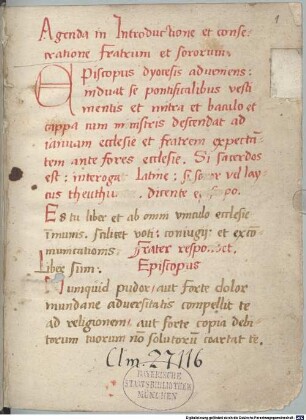 1
Agenda in Introductione et conse-
cratione fratrum et sororum.
Episcopus dyocesis adveniens:
induat se pontificalibus vesti
mentis et mitra et baculo et
cappa cum ministris descendat ad
ianuam ecclesie et fratrem expectā-
tem ante fores ecclesie. Si sacerdos
est: interoga Latine: si vel lay-
cus theuthu dicente
Es tu liber et ab omni vinculo ecclesie
īmunis. scilicet voti: coniugij: et excō
municationis: Frater
Liber sum: Episcopus
Numquid pudor: aut forte dolor
mundane adversitatis compellit te
ad religionem aut forte copia debi-
torum tuorum nō solutorū coartat te.
Clm. 27116
BAYERISCHE
STAATSBIBLIOTHEK
MÜNCHEN